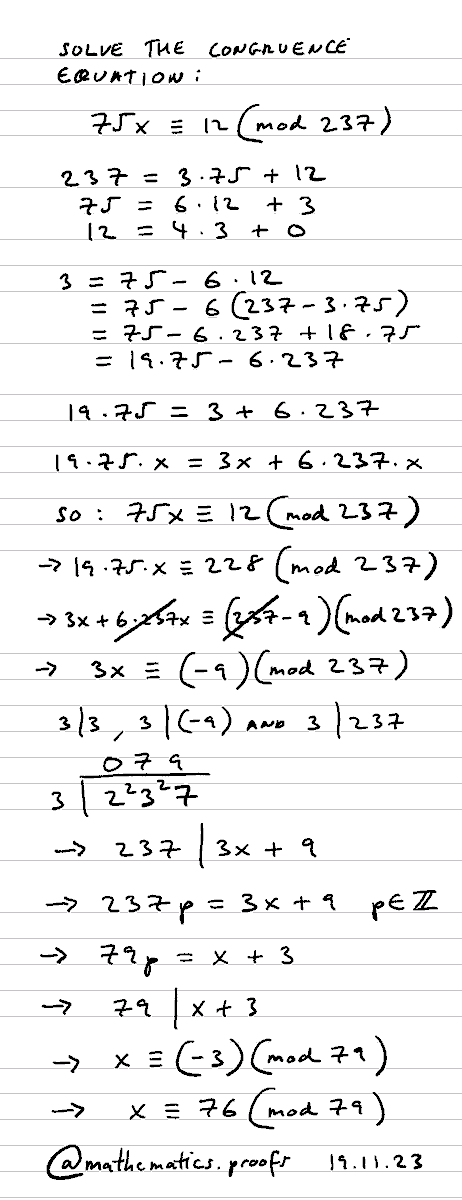 SOLVE THE CONGRUENCE
EQUATION:
75x ≡ 12 (mod 237)
237 = 3·75 + 12
75 = 6·12 + 3
12 = 4·3 + 0
3 = 75 - 6·12
= 75 - 6(237 - 3·75)
= 75 - 6·237 + 18·75
= 19·75 - 6·237
19·75 = 3 + 6·237
19·75·x = 3x + 6·237·x
SO: 75x ≡ 12 (mod 237)
→ 19·75·x ≡ 228 (mod 237)
→ 3x + 6·237x ≡ (237-9)(mod 237)
→ 3x ≡ (-9)(mod 237)
3|3, 3|(-9) AND 3|237
079
3 | 2²3²7
→ 237 | 3x + 9
→ 237p = 3x + 9 p∈ℤ
→ 79p = x + 3
→ 79 | x + 3
→ x ≡ (-3)(mod 79)
→ x ≡ 76 (mod 79)
@mathematics.proofs 19.11.23